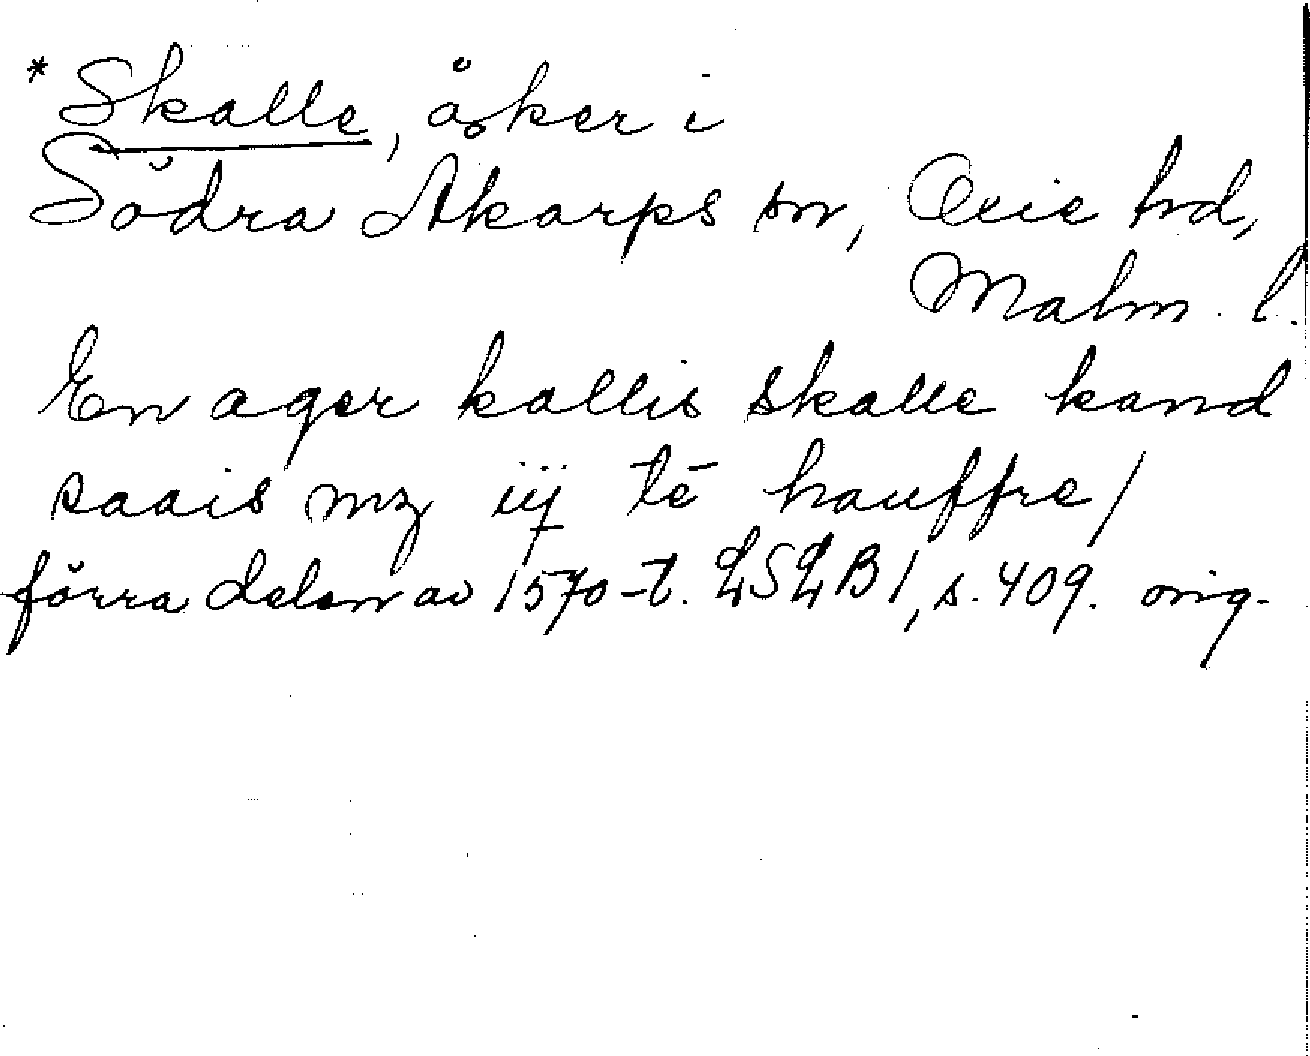 *Skalle, åker i
Södra Åkarps sn, Oxie hd,
Malm. l.
En ager kallis skalle kand
saais mz iij tē hauffre/
förra delen av 1570-t. LSLB 1, s. 409. orig.